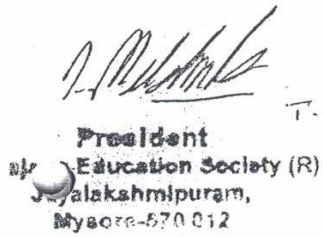 T.
President
Education Society (R)
Jayalakshmipuram,
Mysore-570 012